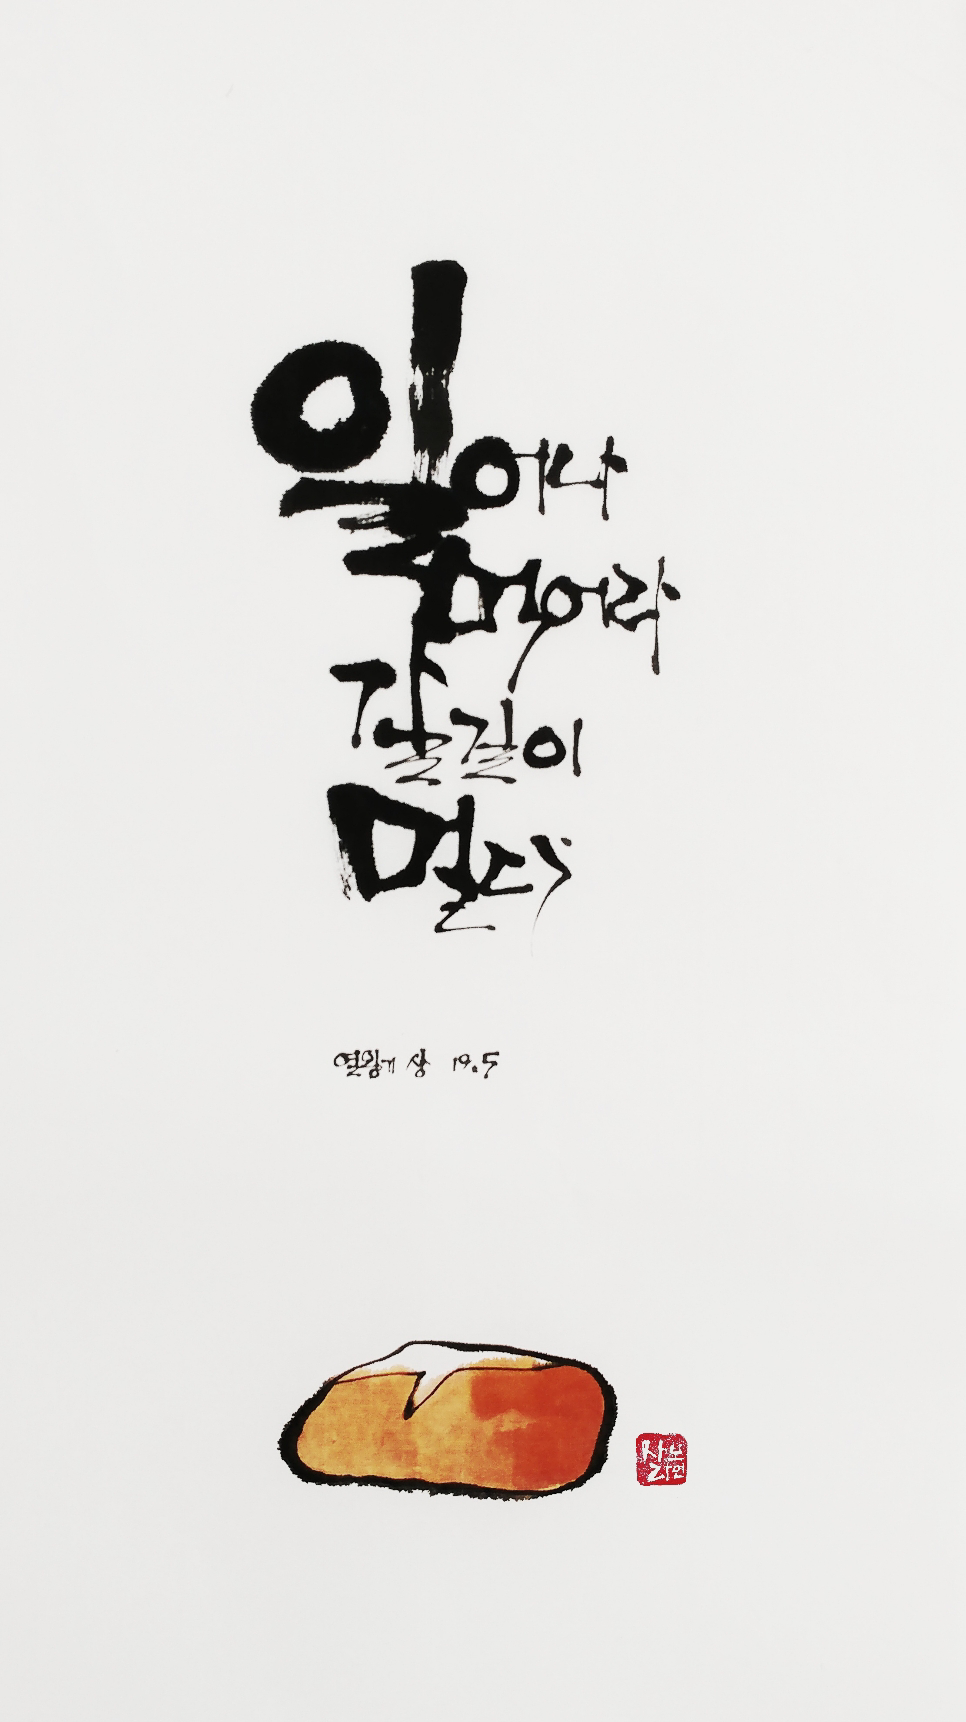 일어나
먹어라
갈길이
멀다
열왕기 상 19.5